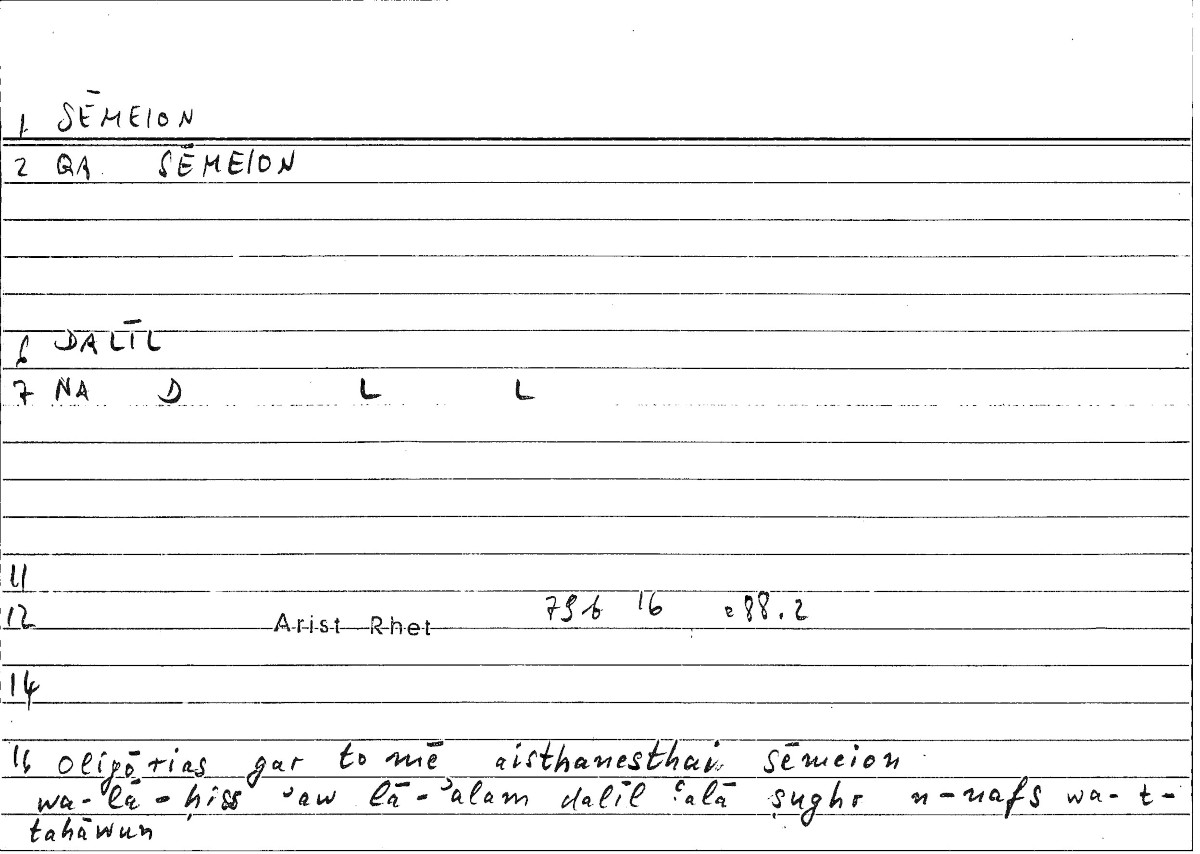 1 SĒMEION
2 QA SĒMEION
6 DALĪL
7 NA D L L
11
12 Arist Rhet 79b 16 88.2
14
16 oligōrias gar to mē aisthanesthai sēmeion
wa-lā-ḥiss ʾaw lā-ʾalam dalīl ʿalā ṣughr n-nafs wa-t-
tahāwun